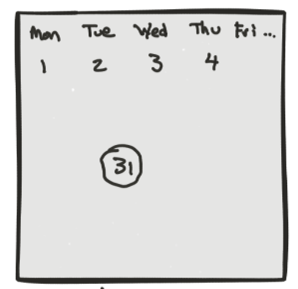 Mon Tue Wed Thu Fri...
1 2 3 4
31